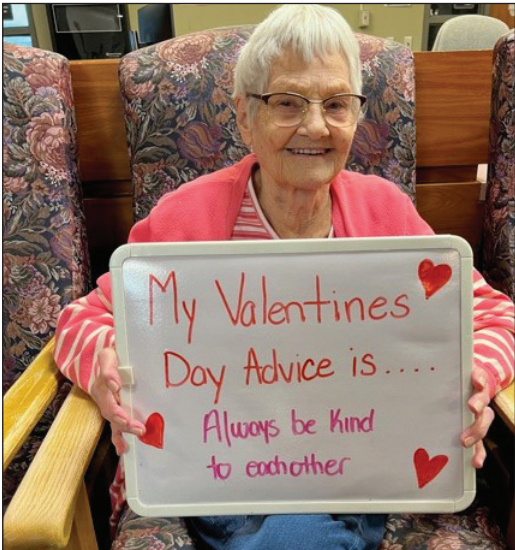 My Valentines
Day Advice is....
Always be Kind
to eachother